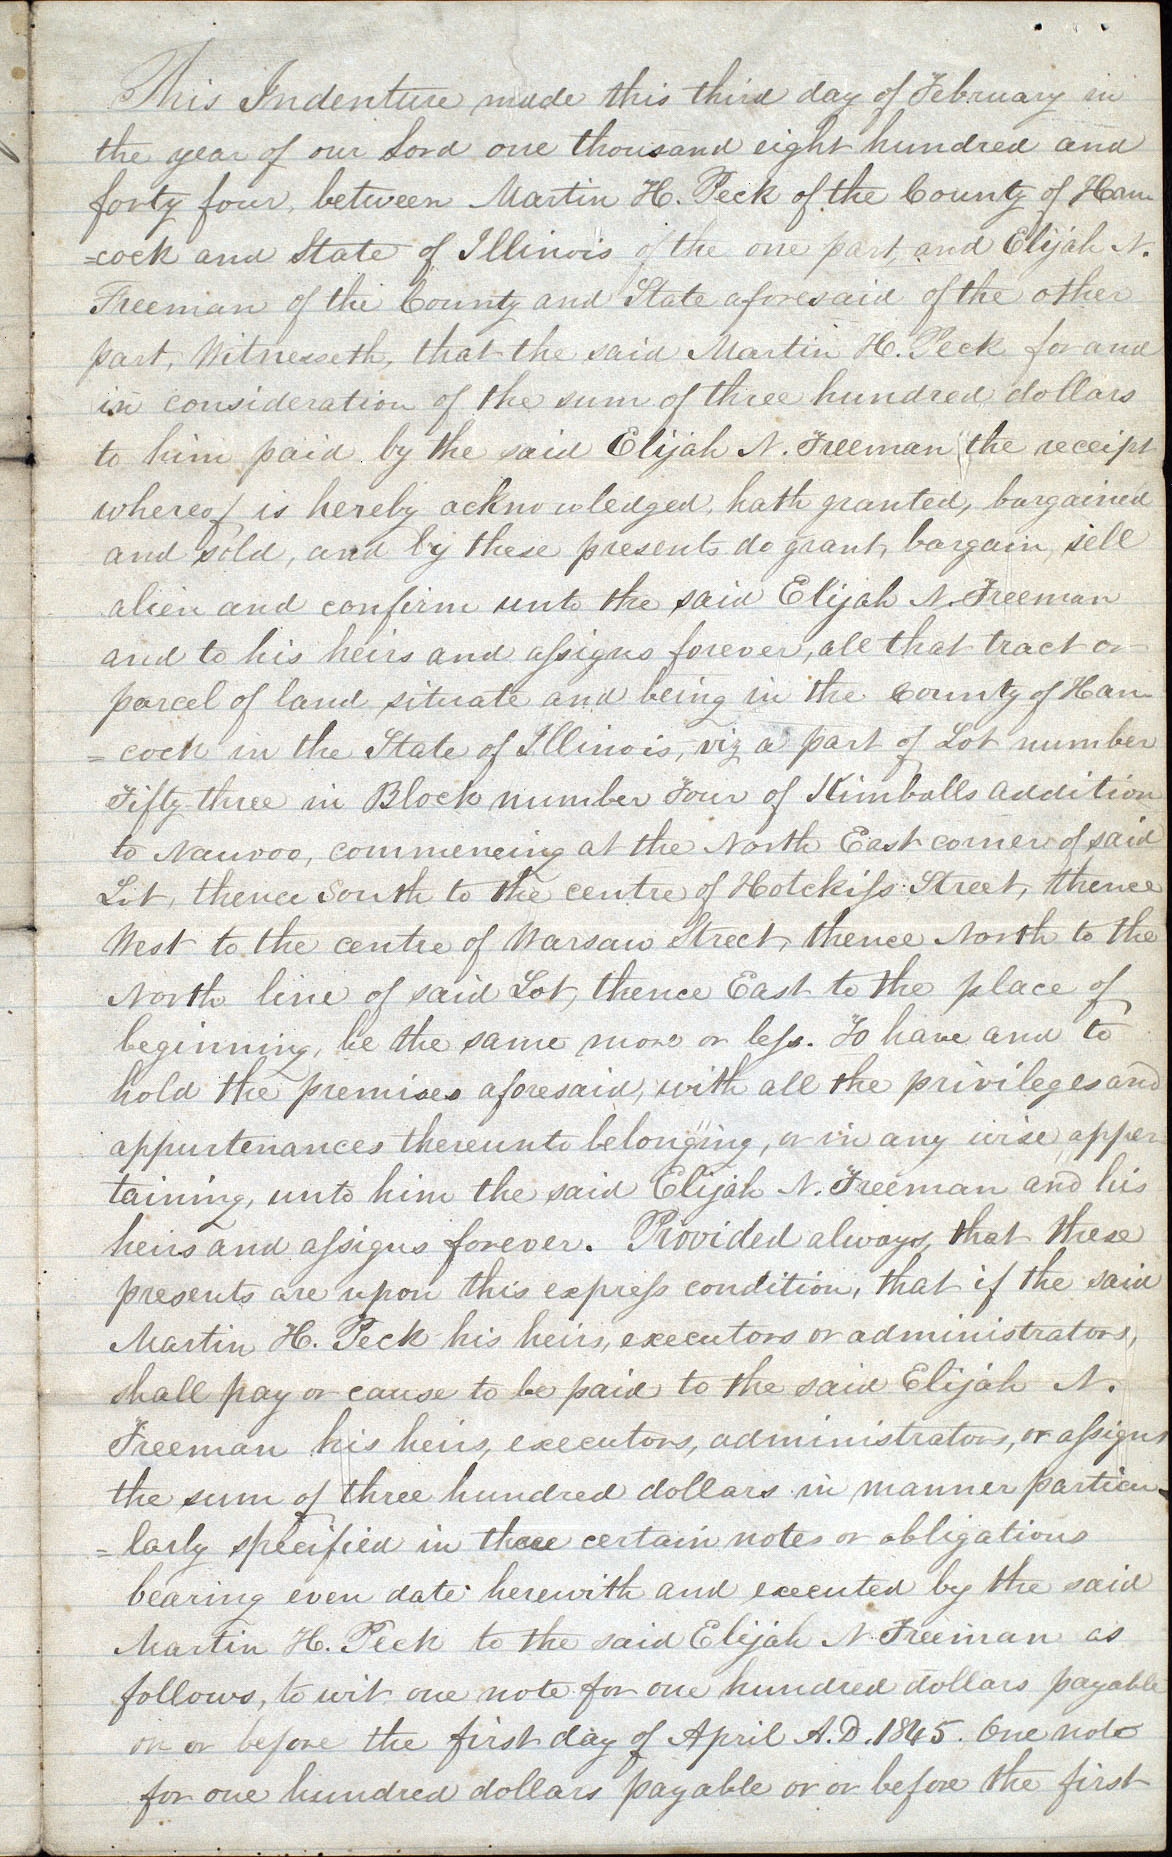 This Indenture made this third day of February in
the year of our Lord one thousand eight hundred and
forty four, between Martin H. Peck of the County of Han
=cock and State of Illinois of the one part, and Elijah N.
Freeman of the County and State aforesaid of the other
part, Witnesseth, that the said Martin H. Peck for and
in consideration of the sum of three hundred dollars
to him paid by the said Elijah N. Freeman the receipt
whereof is hereby acknowledged, hath granted, bargained
and sold, and by these presents do grant, bargain, sell
alien and confirm unto the said Elijah N. Freeman
and to his heirs and assigns forever, all that tract or
parcel of land situate and being in the County of Han
=cock in the State of Illinois, viz a part of Lot number
Fifty-three in Block number Four of Kimballs addition
to Nauvoo, commencing at the North East corner of said
Lot, thence South to the centre of Hotckiss Street, thence
West to the centre of Warsaw Street, thence North to the
North line of said Lot, thence East to the place of
beginning, be the same more or less. To have and to
hold the premises aforesaid, with all the privileges and
appurtenances thereunto belonging, or in any wise apper
taining, unto him the said Elijah N. Freeman and his
heirs and assigns forever. Provided always, that these
presents are upon this express condition, that if the said
Martin H. Peck his heirs, executors or administrators,
shall pay or cause to be paid to the said Elijah N.
Freeman his heirs, executors, administrators, or assigns
the sum of three hundred dollars in manner particu
=larly specified in three certain notes or obligations
bearing even date herewith and executed by the said
Martin H. Peck to the said Elijah N. Freeman as
follows, to wit one note for one hundred dollars payable
on or before the first day of April A.D. 1845. One note
for one hundred dollars payable or or before the first